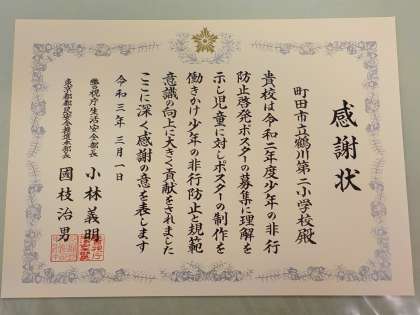 感謝状
町田市立鶴川第二小学校殿
貴校は令和二年度少年の非行
防止啓発ポスターの募集に理解を
示し児童に対しポスターの制作を
働きかけ少年の非行防止と規範
意識の向上に大きく貢献をされました
ここに深く感謝の意を表します
令和三年三月一日
警視庁生活安全部長 小林義明
東京都都民安全推進本部長 國枝治男